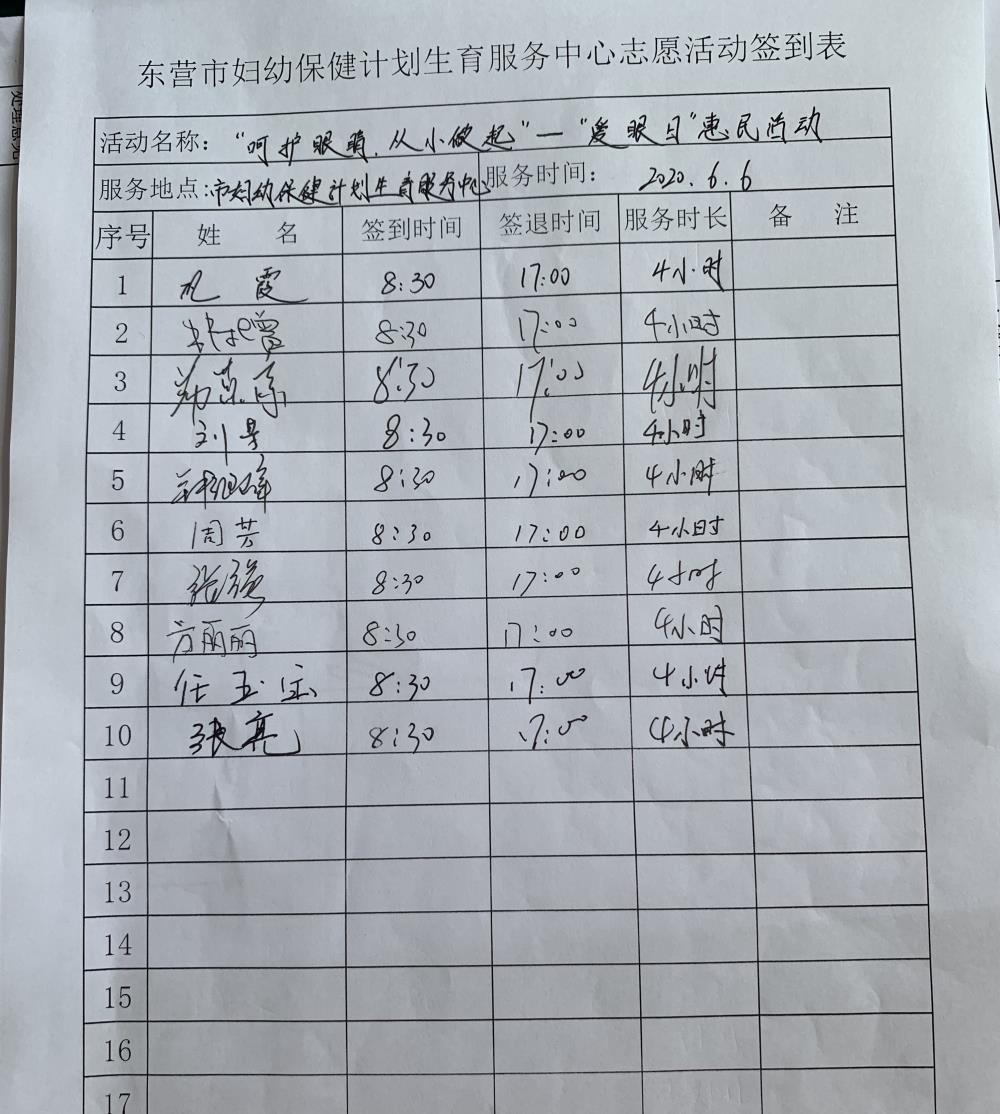 东营市妇幼保健计划生育服务中心志愿活动签到表
活动名称: "呵护眼睛,从小做起"—"爱眼日"惠民活动
服务地点:市妇幼保健计划生育服务中心 服务时间: 2020.6.6
序号 姓 名 签到时间 签退时间 服务时长 备 注
1 霞 8:30 17:00 4小时
2 8:30 17:00 4小时
3 8:30 17:00 4小时
4 刘 8:30 17:00 4小时
5 8:30 17:00 4小时
6 周芳 8:30 17:00 4小时
7 张强 8:30 17:00 4小时
8 方丽丽 8:30 17:00 4小时
9 任玉宝 8:30 17:00 4小时
10 张亮 8:30 17:00 4小时
11
12
13
14
15
16
17